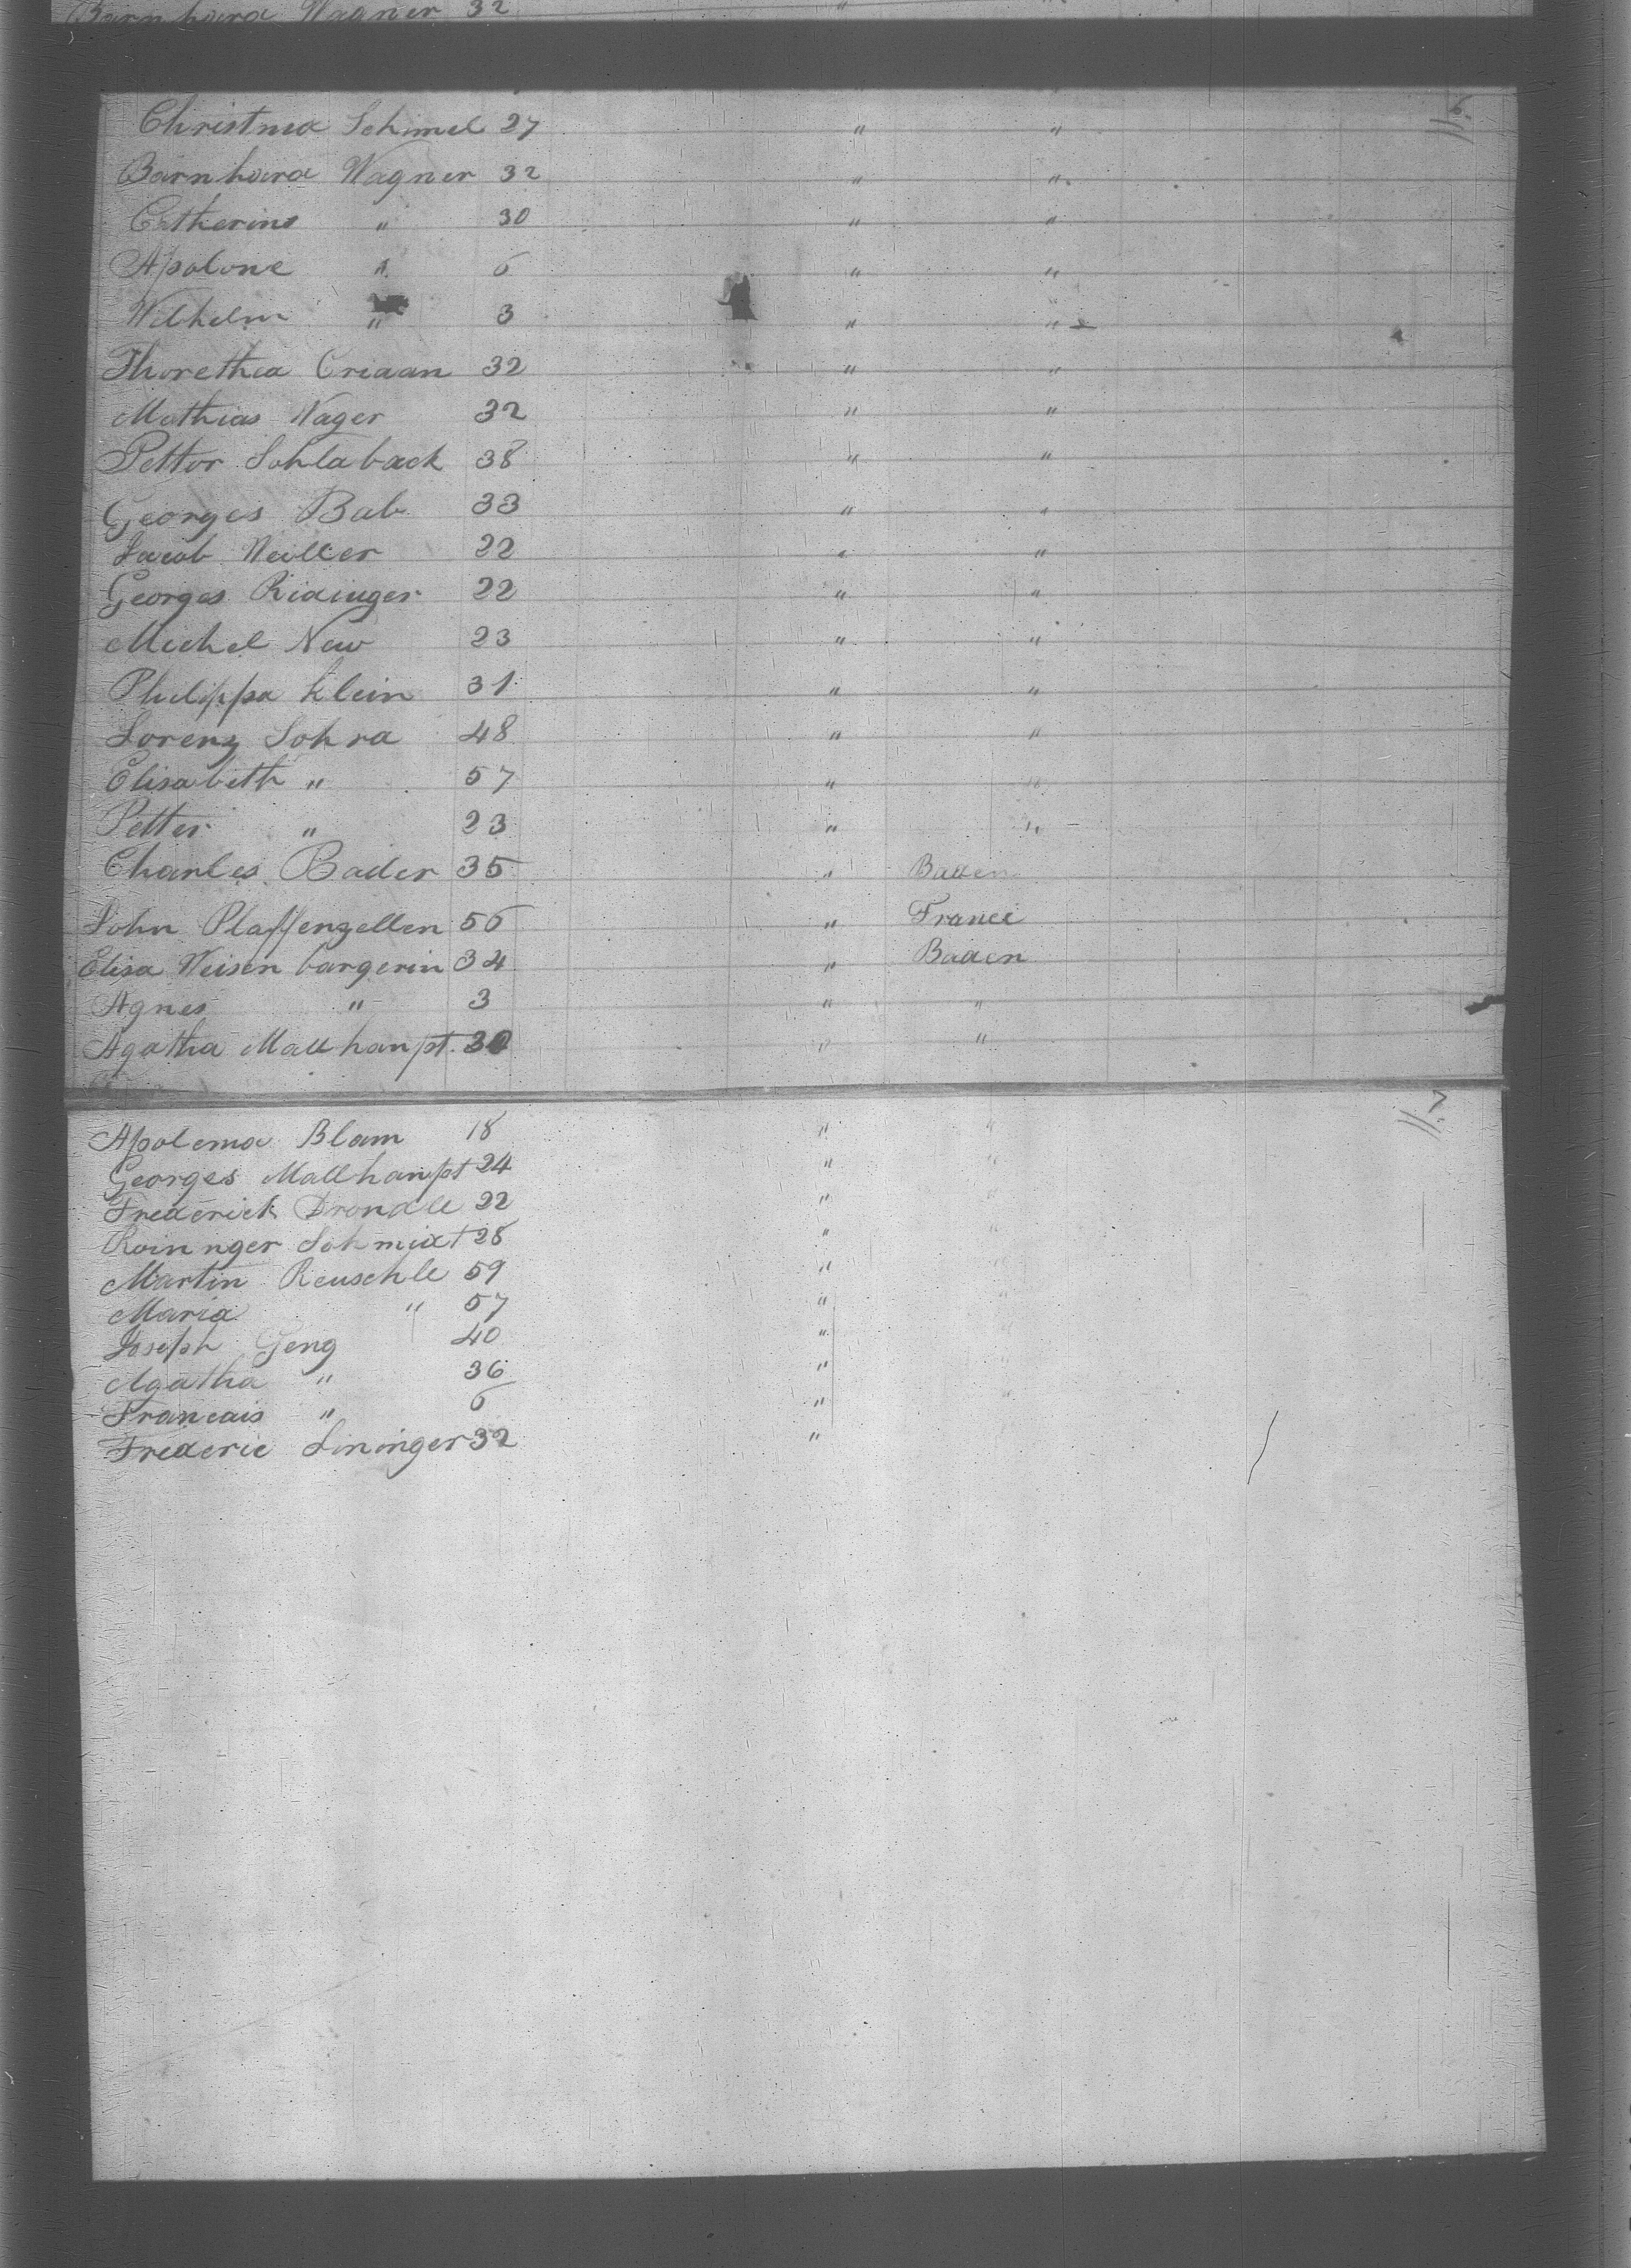 Barnhard Wagner 32 " "
6
Christma Schmel 27 " "
Barnhard Wagner 32 " "
Catherine " 30 " "
Apolone " 6 " "
Wilhelm " 3 " "
Thorethea Criaan 32 " "
Mathias Wager 32 " "
Petter Schlaback 38 " "
Georges Bab 33 " "
Jacob Weiller 22 " "
Georges Ridinger 22 " "
Michel New 23 " "
Philippa Klein 31 " "
Lorenz Sohra 48 " "
Elisabeth " 57 " "
Petter " 23 " "
Charles Bader 35 " Baden
John Plaffenzellen 56 " France
Elisa Weisenbargerin 34 " Baden
Agnes " 3 " "
Agatha Mallhanpt 30 " "
7
Apolema Blam 18 " "
Georges Mallhanpt 24 " "
Frederick Drondle 22 " "
Roininger Schmidt 28 " "
Martin Reuschle 59 " "
Maria " 57 " "
Joseph Geng 40 " "
Agatha " 36 " "
Francais " 6 " "
Frederic Lininger 32 "